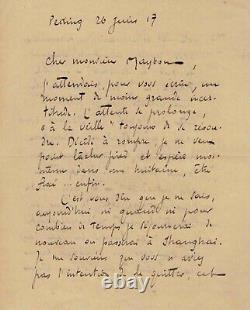 Peking 26 juin 17
Cher monsieur Maybon,
J'attendais pour vous écrire, un
moment de moins grande incer-
titude. L'attente se prolonge,
"à la veille" toujours de se résou-
dre. Décidé à rompre, je ne veux
point lâcher pied et espère
dans une huitaine, être
enfin.
C'est vous dire que je ne sais,
aujourd'hui ni quand ni pour
combien de temps je séjournerai de
nouveau ou passerai à Shanghai.
Je me souviens que vous n'avez
pas l'intention de la quitter, cet